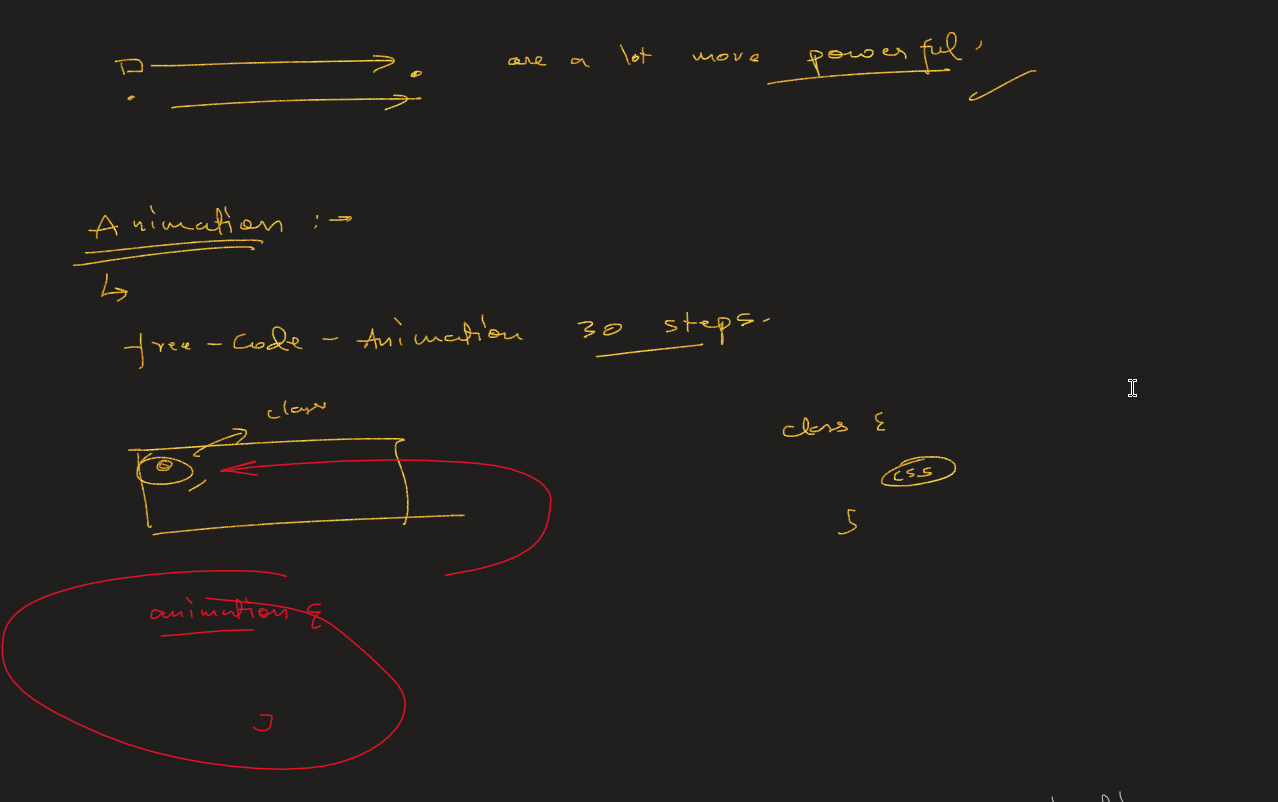 are a lot more powerful,
Animation :→
free - Code - Animation 30 steps.
class
class {
css
}
animation {
}